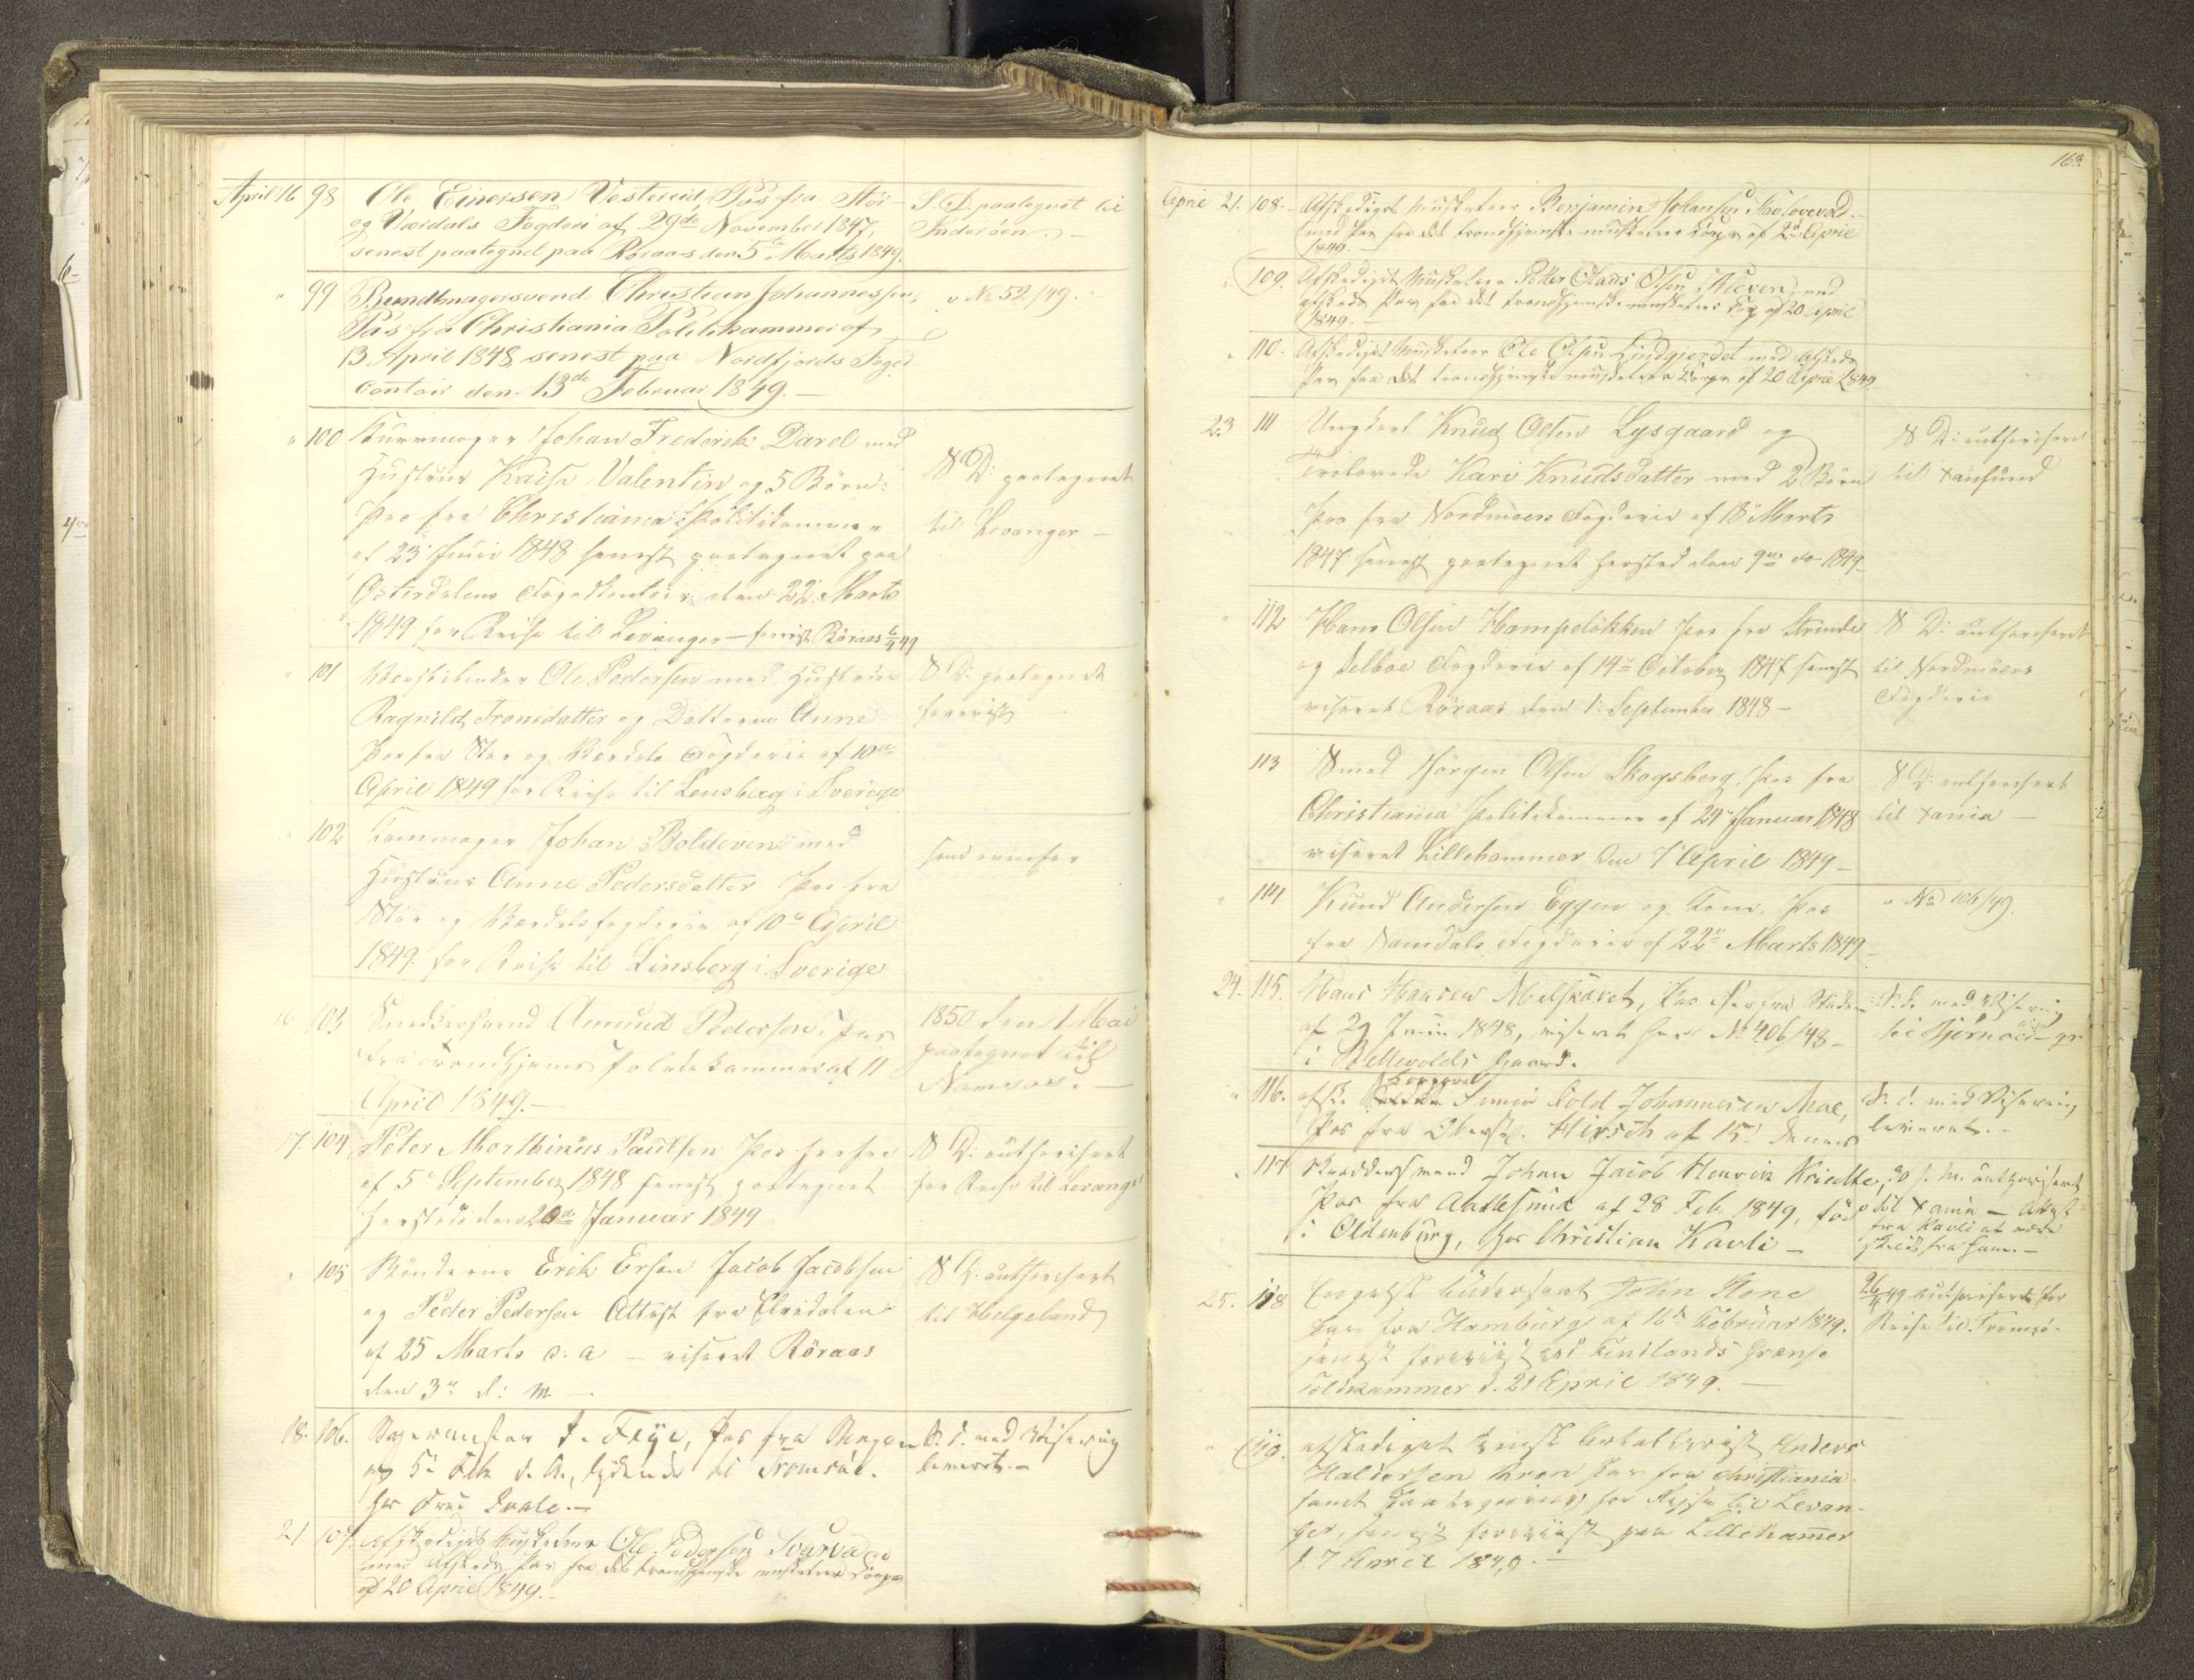 April 16 98 Ole Einersen Vestereid, Pas fra Stör-
og Værdals Fogderi af 29de November 1847,
senest paategnet paa Röraas den 5te Marts 1849.
S. D. paategnet til
Inderöen. -
" 99 Bundtmagersvend Christian Johannessen,
Pas fra Christiania Politikammer af
13 April 1848, senest paa Nordfjords Foged
contoir den 13de Februar 1849. -
v No 52/49.
" 100 Kurvmager Johan Frederik Darel med
Hustrue Kaisa Valentin og 5 Börn:
Pas fra Christiania Politikammer
af 23 Juni 1848 senest paategnet paa
Österdalens Fogedkontoir den 22 Marts
1849 for Reise til Levanger - forevist Röraas
S D: paategnet
til Levanger -
" 101 Ole Pedersen med Hustrue
Ragnild Tronsdatter og Datteren Anne
Pas fra Stör og Værdals Fogderie af 10de
April 1849 for Reise til Lensberg i Sverige
S D: paategnet
forevist
" 102 Kammager Johan Boldevin med
Hustrue Anne Pedersdatter Pas fra
Stör og Værdals fogderie af 10de April
1849 for Reise til Linsberg i Sverige
ovenfor
16 103 Snedkersvend Amund Pedersen, Pas
fra Trondhjems Politikammer af 11
April 1849. -
1850 den 1 Mai
paategnet til
Namsos. -
17. 104 Peter Morthinus Paulsen Pas herfra
af 5te September 1848 senest paategnet
hersteds den 20de Januar 1849
S D: authoriseret
for Reise til Levanger
" 105 Bönderne Erik Ersen Jacob Jacobsen
og Peder Pedersen Attest fra Elvdalen
af 25 Marts d: a - viseret Röraas
den 3de d: M -
S D: authoriseret
til Helgeland
18. 106. Pas fra Bergen
af 5 Feb. d. A., lydende til Tromsöe.
hos
S. d. med Visering
leveret. -
21 107. Afskediget Musketeer Ole Pedersen Svarva
med Afskeds Pas fra det trondhjemske musketeer Corps
af 20 April 1849. -
163.
April 21. 108. - Afskediget Musketeer Benjamin Johansen
med Pas fra det trondhjemske musketeer Corps af 20 April
1849. -
" 109. Afskediget Musketeer Petter Olaus Olsen Kleven, med
afskeds Pas fra det trondhjemske musketeer Corps af 20 April
1849. -
" 110. - Afskediget Musketeer Ole Olsen Lindgjerdet med Afskeds
Pas fra det trondhjemske musketeer Corps af 20 April 1849.
23 111 Ungkarl Knud Olsen Lysgaard og
Trolovede Kari Knudsdatter med 2 Börn
Pas fra Nordmöers Fogderie af 18 Marts
1847 senest paategnet hersted den 9de do 1849 -
S D: authoriseret
til Xansund
" 112 Hans Olsen Hampelökken Pas fra Strinde
og Selboe Fogderie af 14de October 1847 senest
viseret Röraas den 1 September 1848 -
S D: authoriseret
til Nordmöers
Fogderie
113 Smed Jörgen Olsen Skogsberg. Pas fra
Christiania Politikammer af 24 Januar 1848
viseret Lillehammer den 7 April 1849 -
S D: authoriseret
til Xania -
" 114 Knud Andersen Eggen og Kone, Pas
fra Namdals Fogderie af 22de Marts 1849 -
v No 106/49.
24. 115. Hans Hansen Melskaret, Pas
af 29 Juni 1848, viseret her No 406/48 -
i Bellevolds Gaard.
S. d. med Visering
til
" 116. afsk. Simon Johannesen Moe,
Pas fra Oberstl. Hirsch af 15 dennes
S. d. med Visering
leveret. -
" 117 Skræddersvend Johan Jacob Hinrich
Pas fra af 28 Feb 1849, föd
i Oldenburg, hos Christian Kavli -
30 s. M. authoriseret
til Xania - Attest
fra Kavli at være
skilt fra ham. -
25. 118 Engelsk Undersaat John Stone
Pas fra Hamburg af 16de Februar 1849.
senest foreviist ved Grænse
Toldkammer d. 21 April 1849. -
26/4 49 authoriseret for
Reise til Tromsö.
" 119. afskediget Anders
Haldorsen Kron Pas fra Christiania
samt Paategning for Reise til Levan-
ger, senest foreviist paa Lillehamer
d. 7 April 1849. -